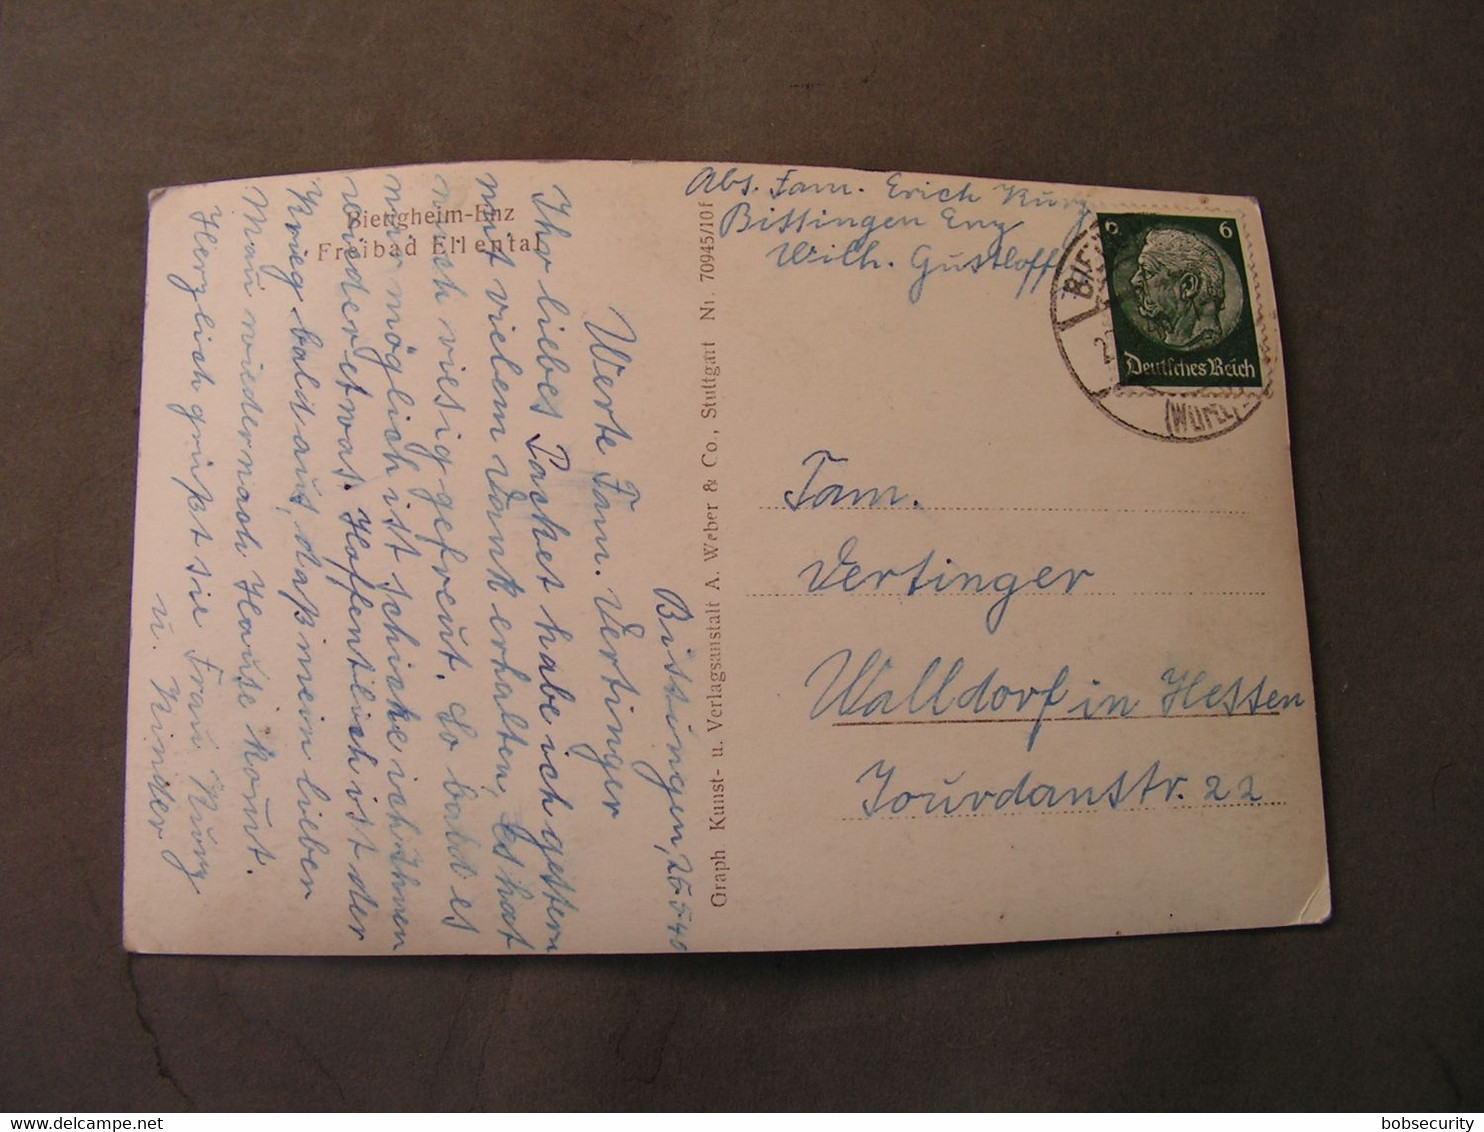 Abs. Fam. Erich Kurz
Bissingen Enz
Wilh. Gustloff
6
Deutsches Reich
Fam.
Vertinger
Walldorf in Hessen
Jourdanstr. 22
Graph Kunst- u. Verlagsanstalt A. Weber & Co., Stuttgart Nr. 70945/10f
Bietigheim-Enz
Freibad Ellental
Bissingen, 26.5.40
Werte Fam. Vertinger
Ihr liebes Packet habe ich gestern
mit vielem Dank erhalten, es hat
mich riesig gefreut. So bald es
mir möglich ist schicke ich Ihnen
wieder etwas. Hofentlich ist der
Krieg bald aus, daß mein lieber
Mann wieder nach Hause kommt.
Herzlich grüßt sie Frau Kurz
u. Kinder
bobsecurity